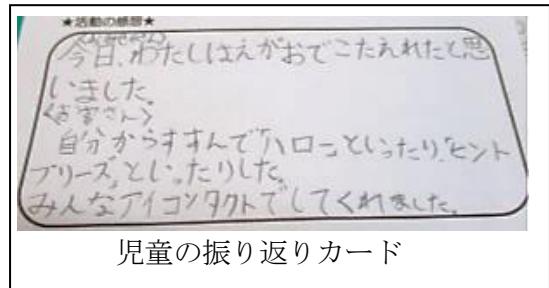 ★活動の感想★
<お店やさん>
今日、わたしはえがおでこたえれたと思
いました。
<お客さん>
自分からすすんで「ハロー」といったり、「ヒント
プリーズ」といったりした。
みんなアイコンタクトでしてくれました。
児童の振り返りカード